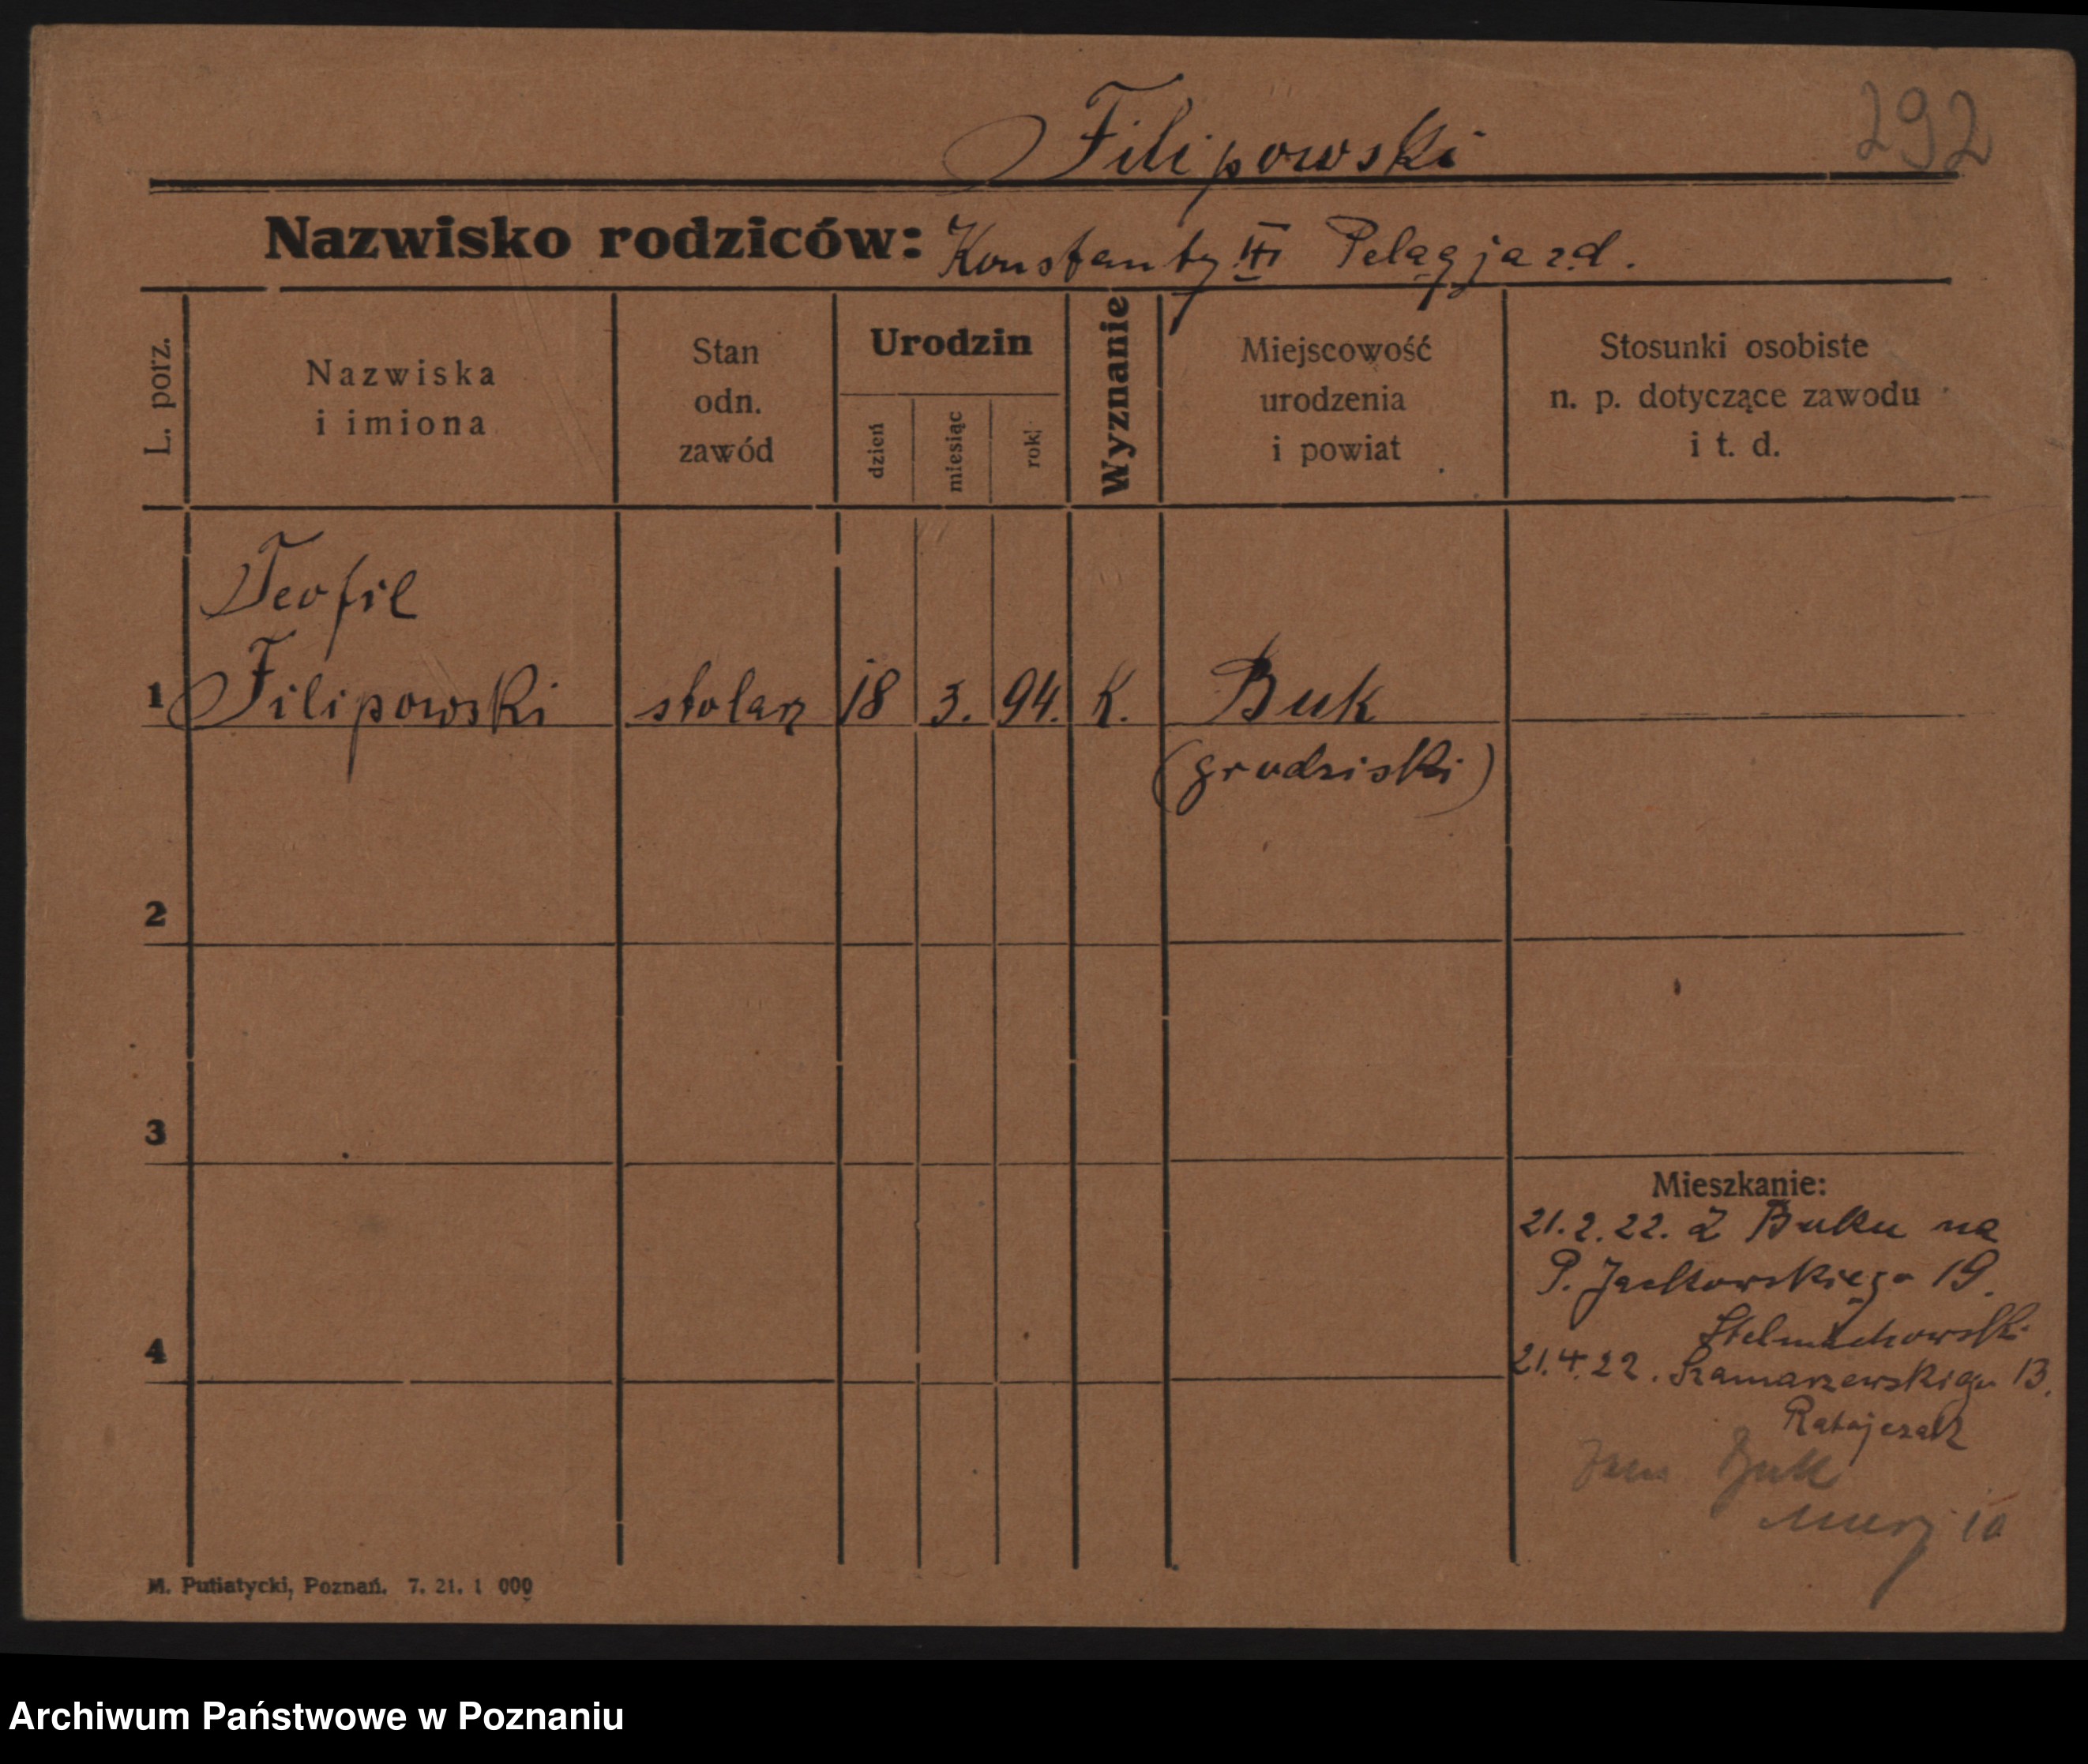 Filipowski
292
Nazwisko rodziców: Konstanty Pelagja z d.
L. porz.
Nazwiska
i imiona
Stan
odn.
zawód
Urodzin
dzień
miesiąc
rok
Wyznanie
Miejscowość
urodzenia
i powiat
Stosunki osobiste
n. p. dotyczące zawodu
i t. d.
Teofil
1 Filipowski stolarz 18 3. 94. K. Buk
(grodziski)
2
3
Mieszkanie:
21.2.22. z Buku na
P. Jackowskiego 19.
Stelmachowski
4
21.4.22. Szamarzewskiego 13.
Ratajczak
Buk
M. Putiatycki, Poznań. 7. 21. 1 000
Archiwum Państwowe w Poznaniu